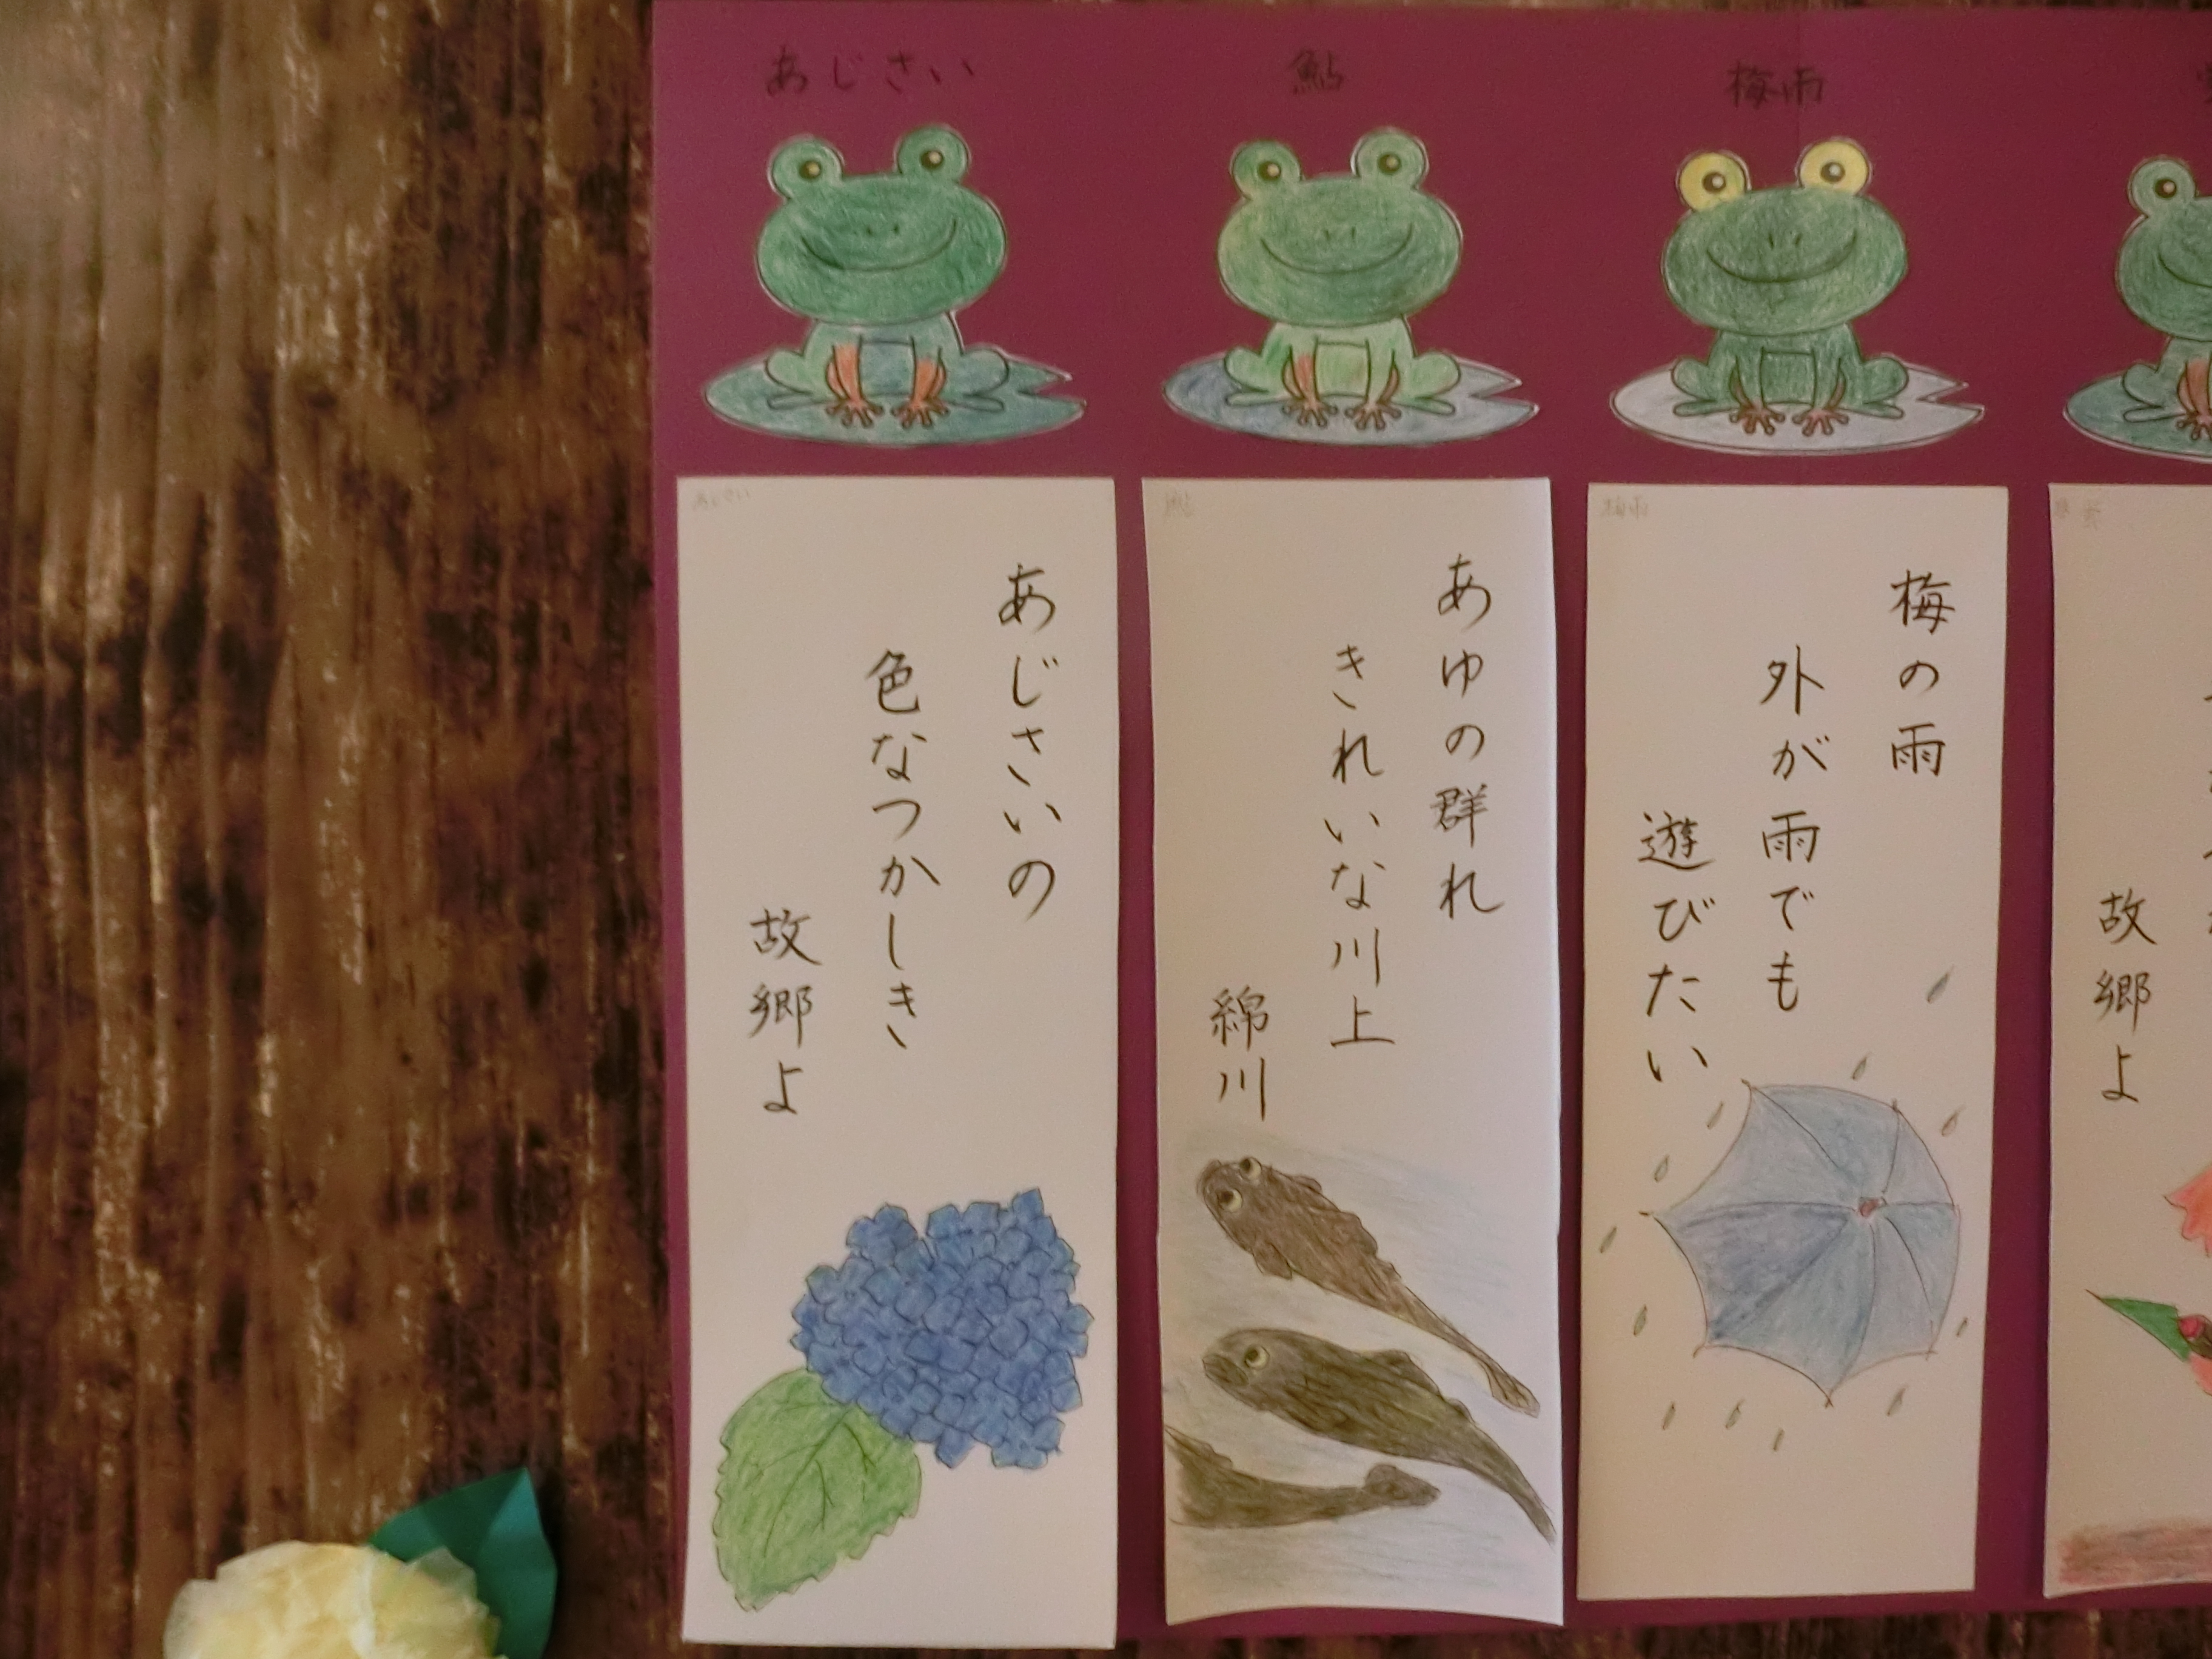 あじさい
鮎
梅雨
あじさい
あじさいの
色なつかしき
故郷よ
鮎
あゆの群れ
きれいな川上
綿川
梅雨
梅の雨
外が雨でも
遊びたい
故郷よ